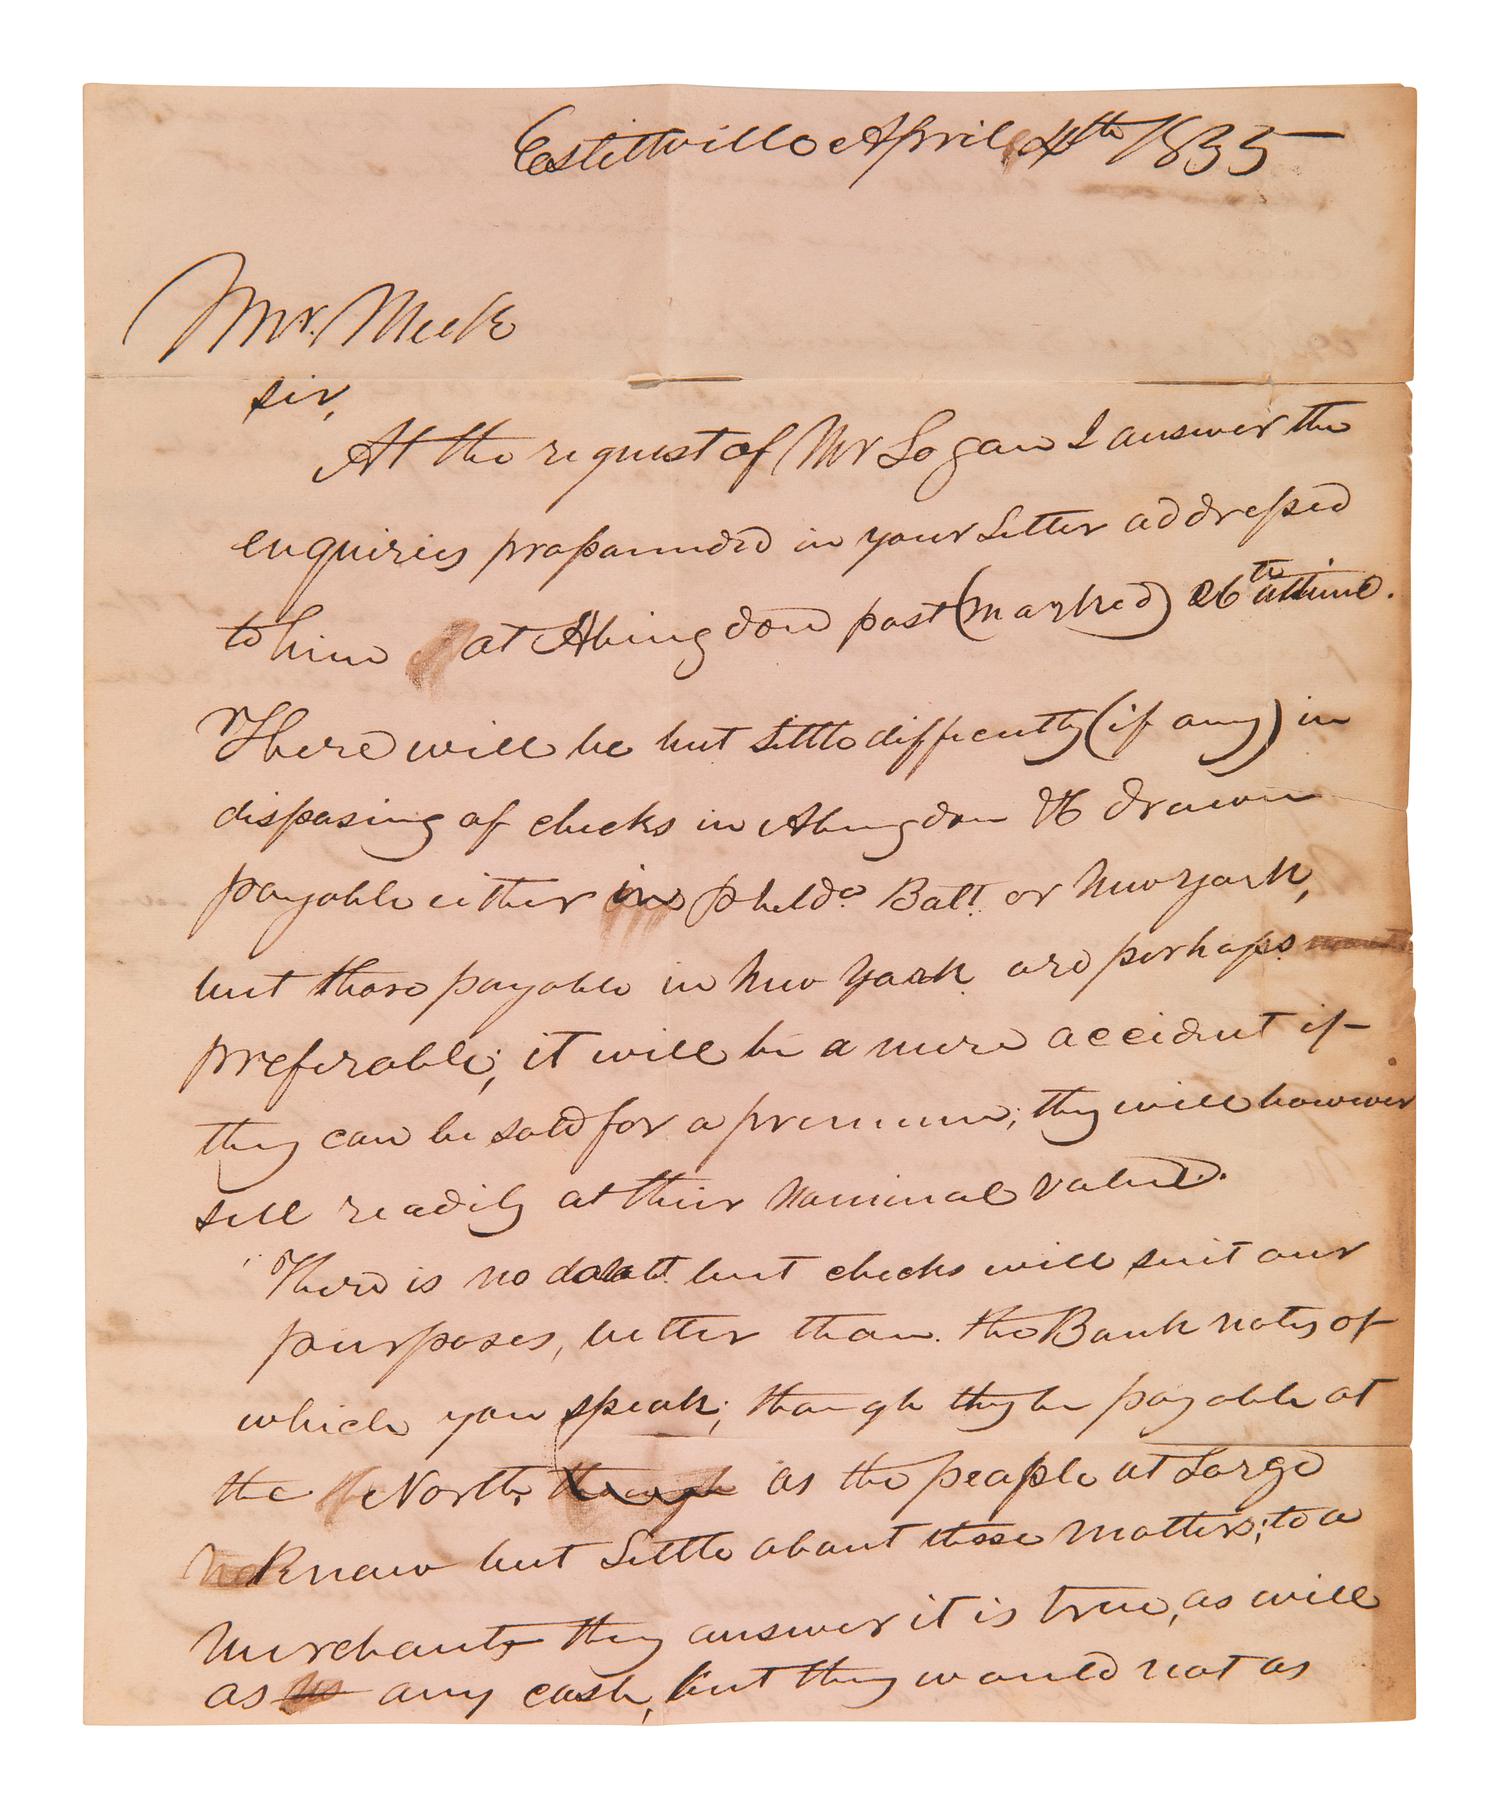 Estillville April 4th 1835
Mr. Meek
sir,
At the request of Mr Logan I answer the
enquiries propounded in your Letter addressed
to him at Abingdon post (marked) 26th ultimo.
There will be but little difficulty (if any) in
disposing of checks in Abingdon &c drawn
payable either in Pheld.a Balt. or New York,
but those payable in New York are perhaps
preferable; it will be a mere accident if
they can be sold for a premium; they will however
sell readily at their nominal value.
There is no doubt but checks will suit our
purposes, better than the Bank notes of
which you speak; though they be payable at
the North, though as the people at Large
Know but Little about these matters; to a
merchant they answer it is true, as will
as any cash, but they would not as